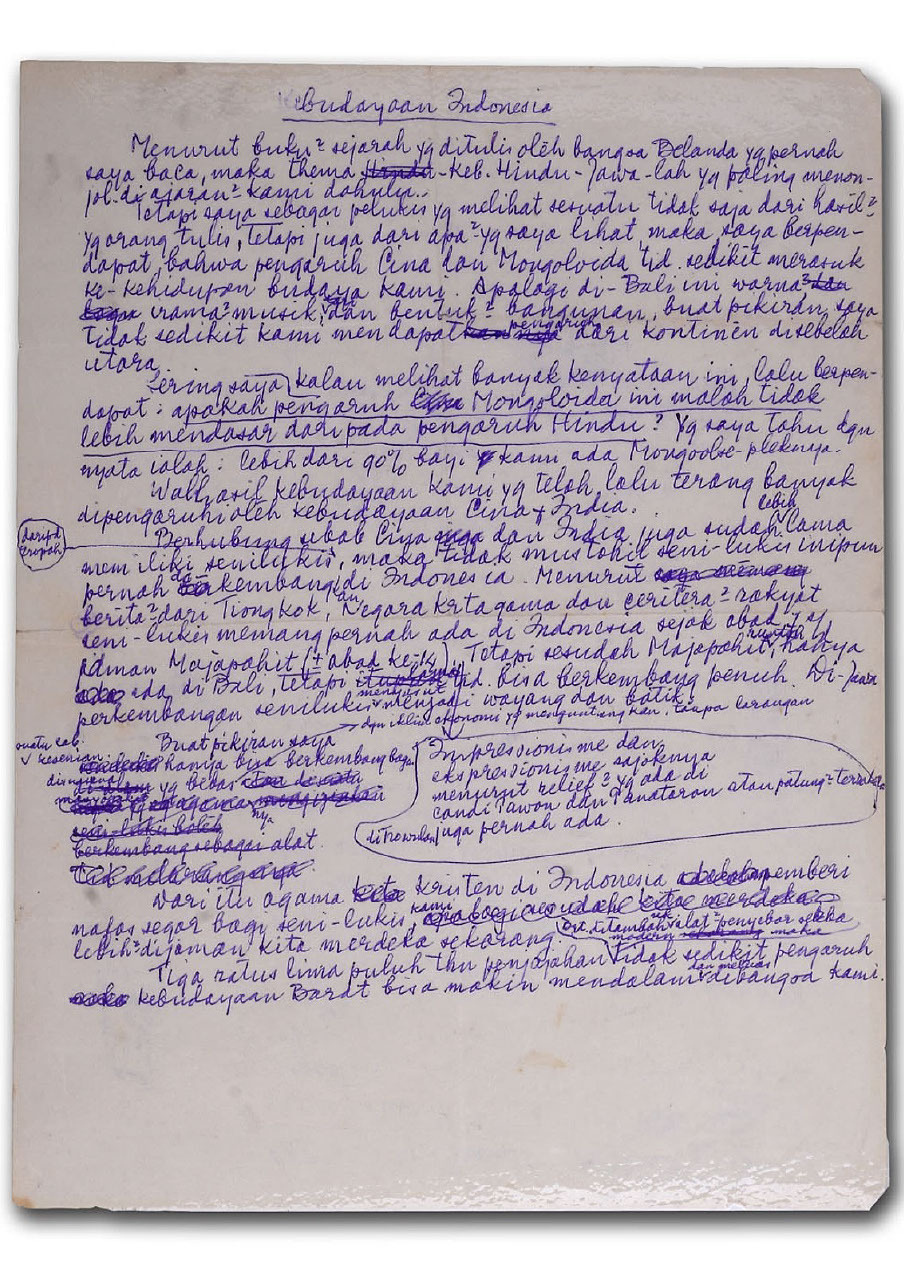 Kebudayaan Indonesia
Menurut buku² sejarah yg ditulis oleh bangsa Belanda yg pernah
saya baca, maka thema Hindu -Keb. Hindu-Jawa-lah yg paling menon-
jol di ajaran² kami dahulu.
Tetapi saya sebagai pelukis yg melihat sesuatu tidak saja dari hasil²
yg orang tulis, tetapi juga dari apa² yg saya lihat, maka saya berpen-
dapat, bahwa pengaruh Cina dan Mongoloida tid. sedikit merasuk
ke-kehidupan budaya kami. Apalagi di-Bali ini warna² dan
irama² musik, dan bentuk² bangunan, buat pikiran saya
pengaruh
tidak sedikit kami mendapatkan nya dari kontinen disebelah
utara.
Sering saya kalau melihat banyak kenyataan ini, lalu berpen-
dapat: apakah pengaruh Cina Mongoloida ini malah tidak
lebih mendasar daripada pengaruh Hindu? Yg saya tahu dgn
nyata ialah: lebih dari 90% bayi kami ada Mongoolse-pleknaja.
Walhasil kebudayaan kami yg telah lalu terang banyak
dipengaruhi oleh kebudayaan Cina + India.
lebih
daripd
Eropah
Berhubung sebab Cina juga dan India juga sudah lama
memiliki senilukis, maka tidak mustahil seni-lukis inipun
pernah berkembang di Indonesia. Menurut saya memang
berita² dari Tiongkok, Negara Kertagama dan ceritera² rakyat
seni-lukis memang pernah ada di Indonesia sejak abad²
jaman Majapahit (± abad ke-14). Tetapi sesudah Majapahit runtuh, hanya
ada di Bali, tetapi itupun tid. bisa berkembang penuh. Di-Jawa
menyusut
perkembangan senilukis menjadi wayang dan batik.
dgn iklim ekonomi yg menguntungkan, tanpa larangan
Buat pikiran saya
suatu cab.
kesenian
hanya bisa berkembang bagus
yg bebas
agama mengizinkan
nya
seni-lukis boleh
berkembang sebagai alat
Impressionisme dan
ekspressionisme sajoknya
menurut relief² yg ada di
candi Jawon dan Panataran atau patung² terrakota
di Trowulan juga pernah ada.
Dari itu agama kita Kristen di Indonesia pemberi
nafas segar bagi seni-lukis kami, apabagi sesudah kita merdeka
lebih² dijaman kita merdeka sekarang.
ditambah alat² penyebar
modern sekarang maka
Tiga ratus lima puluh thn penjajahan tidak sedikit pengaruh
dan meluas
maka kebudayaan Barat bisa makin mendalam dibangsa kami.